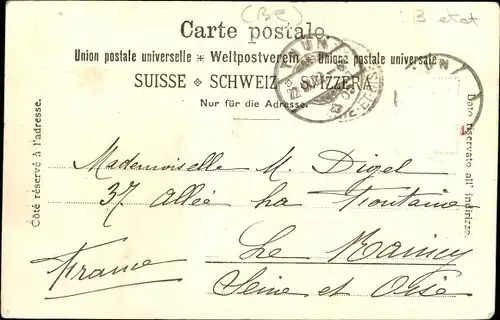 (BE)
3 etat
Carte postale.
Union postale universelle ✻ Weltpostverein ✻ Unione postale universale
SUISSE ✻ SCHWEIZ ✻ SVIZZERA
Nur für die Adresse.
Côté réservé à l'adresse.
Dato riservato all' indirizzo.
Mademoiselle M. Digel
37 Allée La Fontaine
Le Rainçy
France
Seine et Oise